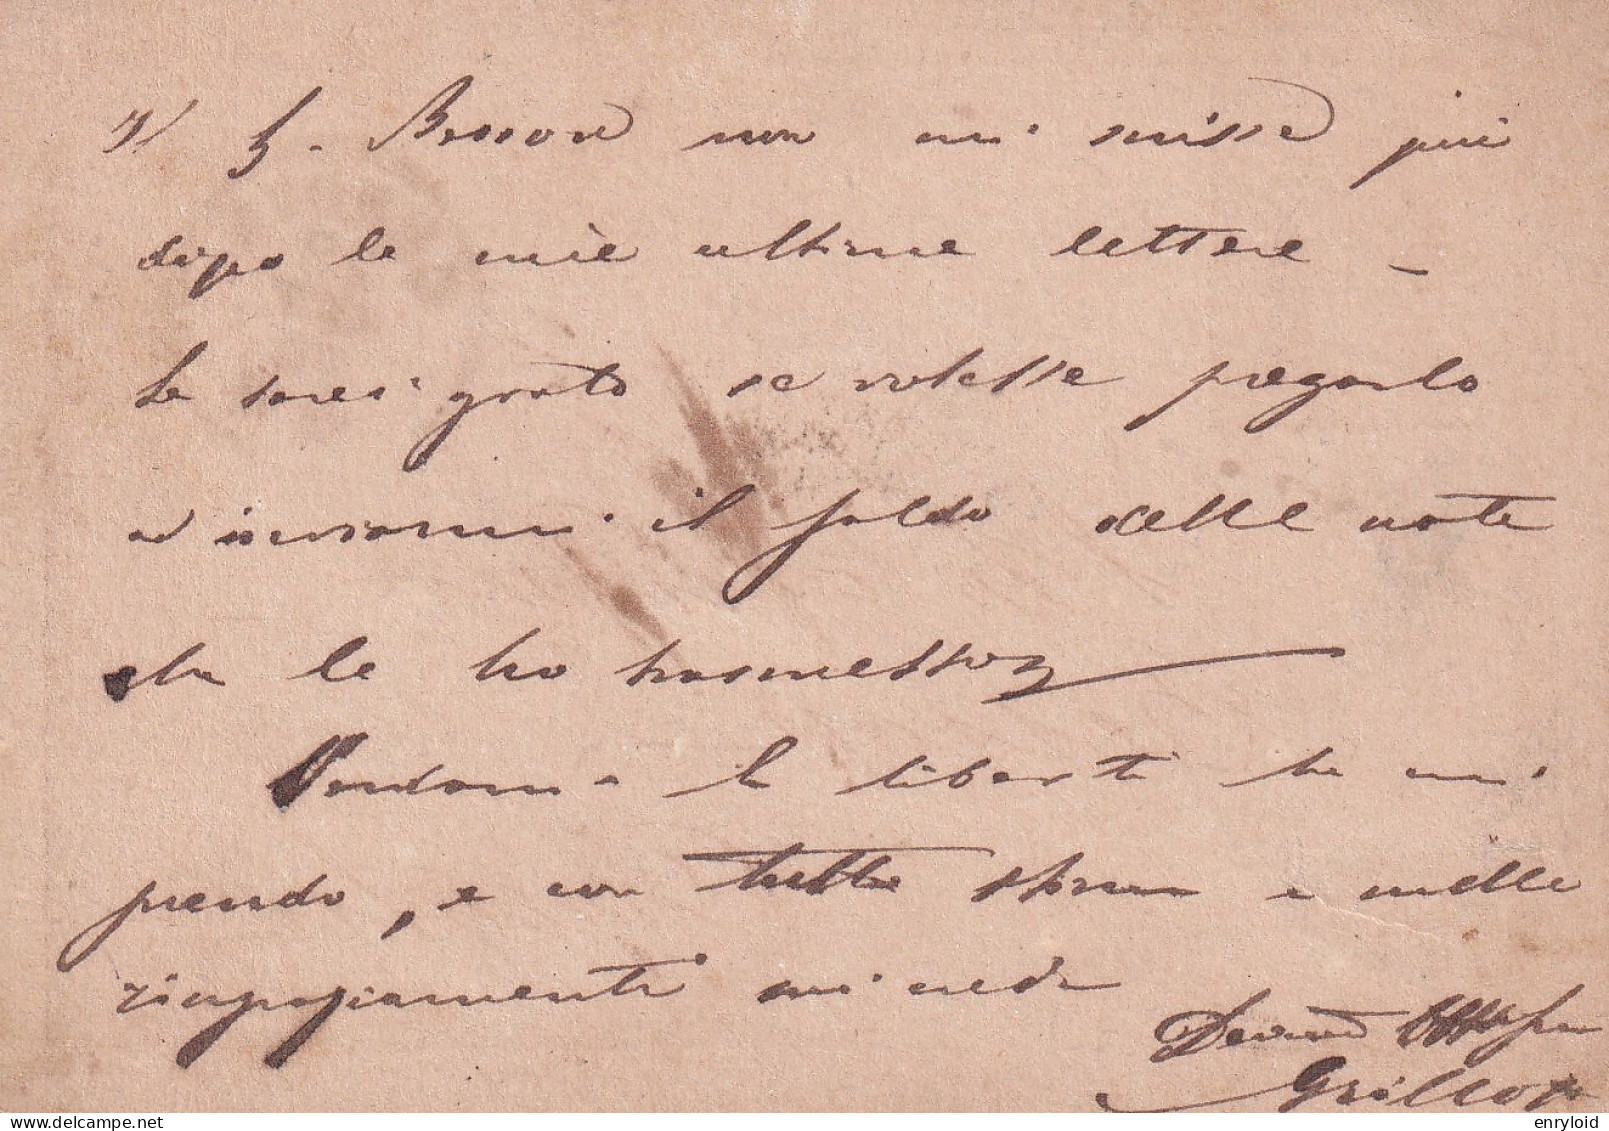 Il S. Bessone non mi scrisse più
dopo le mie ultime lettere -
Le sarei grato se volesse pregarlo
ad inviarmi il saldo delle note
che le ho trasmesso
Perdoni la libertà che mi
prendo, e con tutta stima e mille
ringraziamenti mi creda
Grillo
delcampe.net
enryloid